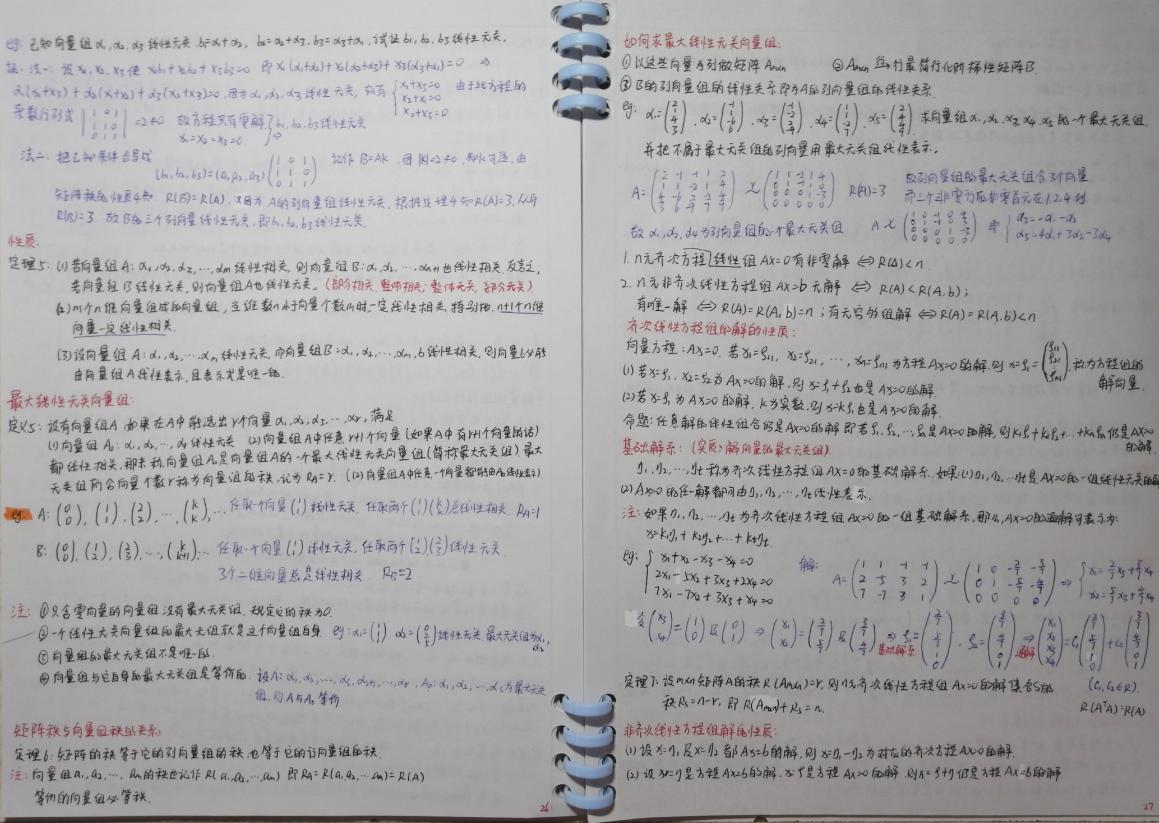 eg: 已知向量组α₁,α₂,α₃线性无关, b₁=α₁+α₂, b₂=α₂+α₃, b₃=α₃+α₁, 试证b₁,b₂,b₃线性无关.
证: 法一: 设x₁,x₂,x₃使 x₁b₁+x₂b₂+x₃b₃=0 即x₁(α₁+α₂)+x₂(α₂+α₃)+x₃(α₃+α₁)=0 ⇒
α₁(x₁+x₃)+α₂(x₁+x₂)+α₃(x₂+x₃)=0, 因为α₁,α₂,α₃线性无关, 故有 {x₁+x₃=0 x₁+x₂=0 x₂+x₃=0 由于此方程的
系数行列式 |1 0 1; 1 1 0; 0 1 1| =2≠0 故方程只有零解 x₁=x₂=x₃=0 ⇒ b₁,b₂,b₃线性无关
法二: 把已知条件合写成
(b₁,b₂,b₃)=(α₁,α₂,α₃)(1 0 1; 1 1 0; 0 1 1) 记作B=AK, 因|K|=2≠0, 知K可逆, 由
矩阵秩的性质4知, R(B)=R(A), 又因为A的列向量组线性无关, 根据定理4知R(A)=3, 从而
R(B)=3. 故B的三个列向量线性无关, 即b₁,b₂,b₃线性无关.
性质:
定理5: (1)若向量组A: α₁,α₂,…,αm线性相关, 则向量组B: α₁,α₂,…,αm+1也线性相关, 反言之,
若向量组B线性无关, 则向量组A也线性无关. (部分相关, 整体相关; 整体无关, 部分无关)
(2)m个n维向量组成的向量组, 当维数n小于向量个数m时一定线性相关, 特别地, n+1个n维
向量一定线性相关.
(3)设向量组A: α₁,α₂,…αm线性无关, 而向量组B=α₁,α₂,…,αm,b线性相关, 则向量b必能
由向量组A线性表示, 且表示式是唯一的.
最大线性无关向量组:
定义5: 设有向量组A, 如果在A中能选出r个向量α₁,α₂,α₃,…αr, 满足
(1)向量组A₀: α₁,α₂,…,αr线性无关 (2)向量组A中任意r+1个向量(如果A中有r+1个向量的话)
都线性相关, 那末称向量组A₀是向量组A的一个最大线性无关向量组(简称最大无关组)最大
无关组所含向量个数r称为向量组的秩, 记为RA=r. ((2)向量组A中任意一个向量都能由A₀线性表示)
eg: A: (0 0), (1 1), (2 2), …, (k k), … 任取一个向量(1 1)线性无关, 任取两个(1 1)(k k)总线性相关. RA=1
B: (0 0), (1 2), (2 3), …, (k k+1), … 任取一个向量(1 2)线性无关, 任取两个(1 2)(2 3)线性无关
3个二维向量总是线性相关. RB=2
注: ①只含零向量的向量组没有最大无关组. 规定它的秩为0.
②一个线性无关向量组的最大无组就是这个向量组自身
③向量组的最大无关组不是唯一的.
④向量组与它自身的最大无关组是等价的.
组, 则A与A₀等价
矩阵秩与向量组秩的关系:
定理6: 矩阵的秩等于它的列向量组的秩, 也等于它的行向量组的秩.
注: 向量组a₁,a₂,…,am的秩也记作R(a₁,a₂,…,am) 即RA=R(a₁,a₂,…am)=R(A)
等价的向量组必等秩.
26
如何求最大线性无关向量组:
①以这些向量为列做矩阵Am×n ②Am×n 经行最简行化阶梯性矩阵B.
③B的列向量组的线性关系即为A的列向量组的线性关系.
eg: α₁=(2 1 4 3), α₂=(-1 1 -6 6), α₃=(-1 -2 2 -9), α₄=(1 1 -2 7), α₅=(2 4 4 9). 求向量组α₁,α₂,α₃,α₄,α₅的一个最大无关组.
并把不属于最大无关组的列向量用最大无关组线性表示.
A=(2 -1 -1 1 2; 1 1 -2 1 4; 4 -6 2 -2 4; 3 6 -9 7 9) ~ (1 1 -2 1 4; 0 1 -1 1 0; 0 0 0 1 -3; 0 0 0 0 0) R(A)=3 故列向量组的最大无关组含3个向量
而三个非零行的非零首元在1,2,4列.
故α₁,α₂,α₄为列向量组的一个最大无关组 A ~ (1 0 -1 0 4; 0 1 -1 0 3; 0 0 0 1 -3; 0 0 0 0 0) 即 {α₃=-α₁-α₂ α₅=4α₁+3α₂-3α₄
1. n元齐次方程线性组AX=0有非零解 ⇔ R(A)<n.
2. n元非齐次线性方程组AX=b无解 ⇔ R(A)<R(A,b);
有唯一解 ⇔ R(A)=R(A,b)=n; 有无穷多组解 ⇔ R(A)=R(A,b)<n
齐次线性方程组的解的性质:
向量方程: AX=0. 若x₁=ξ₁₁, x₂=ξ₂₁, …, xn=ξn1为方程AX=0的解, 则x=ξ₁=(ξ₁₁ ξ₂₁ ⋮ ξn1), 称为方程组的
解向量.
(1)若x=ξ₁, x₂=ξ₂为AX=0的解, 则x=ξ₁+ξ₂也是AX=0的解.
(2)若x=ξ₁为AX=0的解, k为实数, 则x=kξ₁也是AX=0的解.
命题: 任意解的线性组合仍是AX=0的解
的解.
基础解系: (实质: 解向量的最大无关组)
η₁,η₂,…,ηt称为齐次线性方程组AX=0的基础解系. 如果(1)η₁,η₂,…ηt是AX=0的一组线性无关的解
(2)AX=0的任一解都可由η₁,η₂,…,ηt线性表示.
注: 如果η₁,η₂,…,ηt为齐次线性方程组AX=0的一组基础解系, 那么, AX=0的通解可表示为:
x=k₁η₁+k₂η₂+…+ktηt.
eg: {x₁+x₂-x₃-x₄=0 2x₁-5x₂+3x₃+2x₄=0 7x₁-7x₂+3x₃+x₄=0
解:
基础解系 通解
(C₁,C₂∈R).
定理7: 设m×n矩阵A的秩R(Am×n)=r, 则n元齐次线性方程组AX=0的解集合S的
秩Rs=n-r, 即R(Am×n)+Rs=n.
R(AᵀA)=R(A)
非齐次线性方程组解的性质:
(1)设x=η₁及x=η₂都是AX=b的解, 则x=η₁-η₂为对应的齐次方程AX=0的解.
(2)设x=η是方程AX=b的解, x=ξ是方程AX=0的解, 则x=ξ+η仍是方程AX=b的解
27